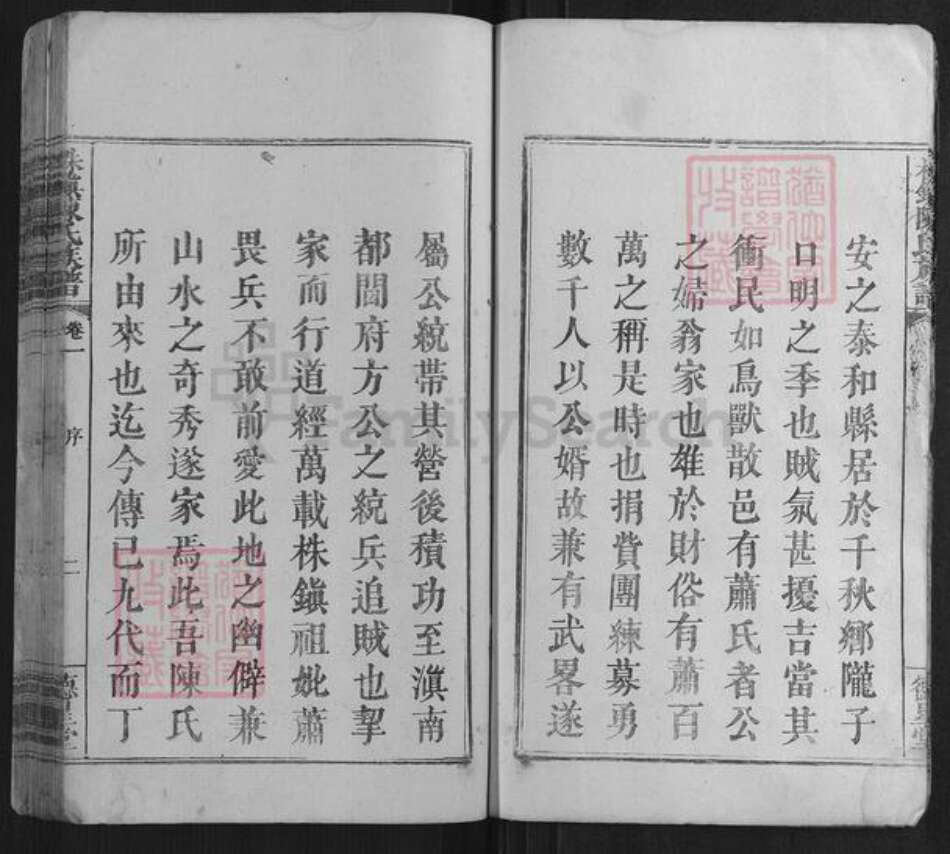 安之泰和縣居於千秋鄉隴子
口明之季也賊氛甚擾吉當其
衝民如鳥獸散邑有蕭氏者公
之婦翁家也雄於財俗有蕭百
萬之稱是時也捐貲團練募勇
數千人以公婿故兼有武畧遂
屬公統帶其營後積功至滇南
都閫府方公之統兵追賊也挈
家而行道經萬載株鎭祖妣蕭
畏兵不敢前愛此地之幽僻兼
山水之奇秀遂家焉此吾陳氏
所由來也迄今傳已九代而丁
株鎭陳氏族譜
卷一
序
二
FamilySearch